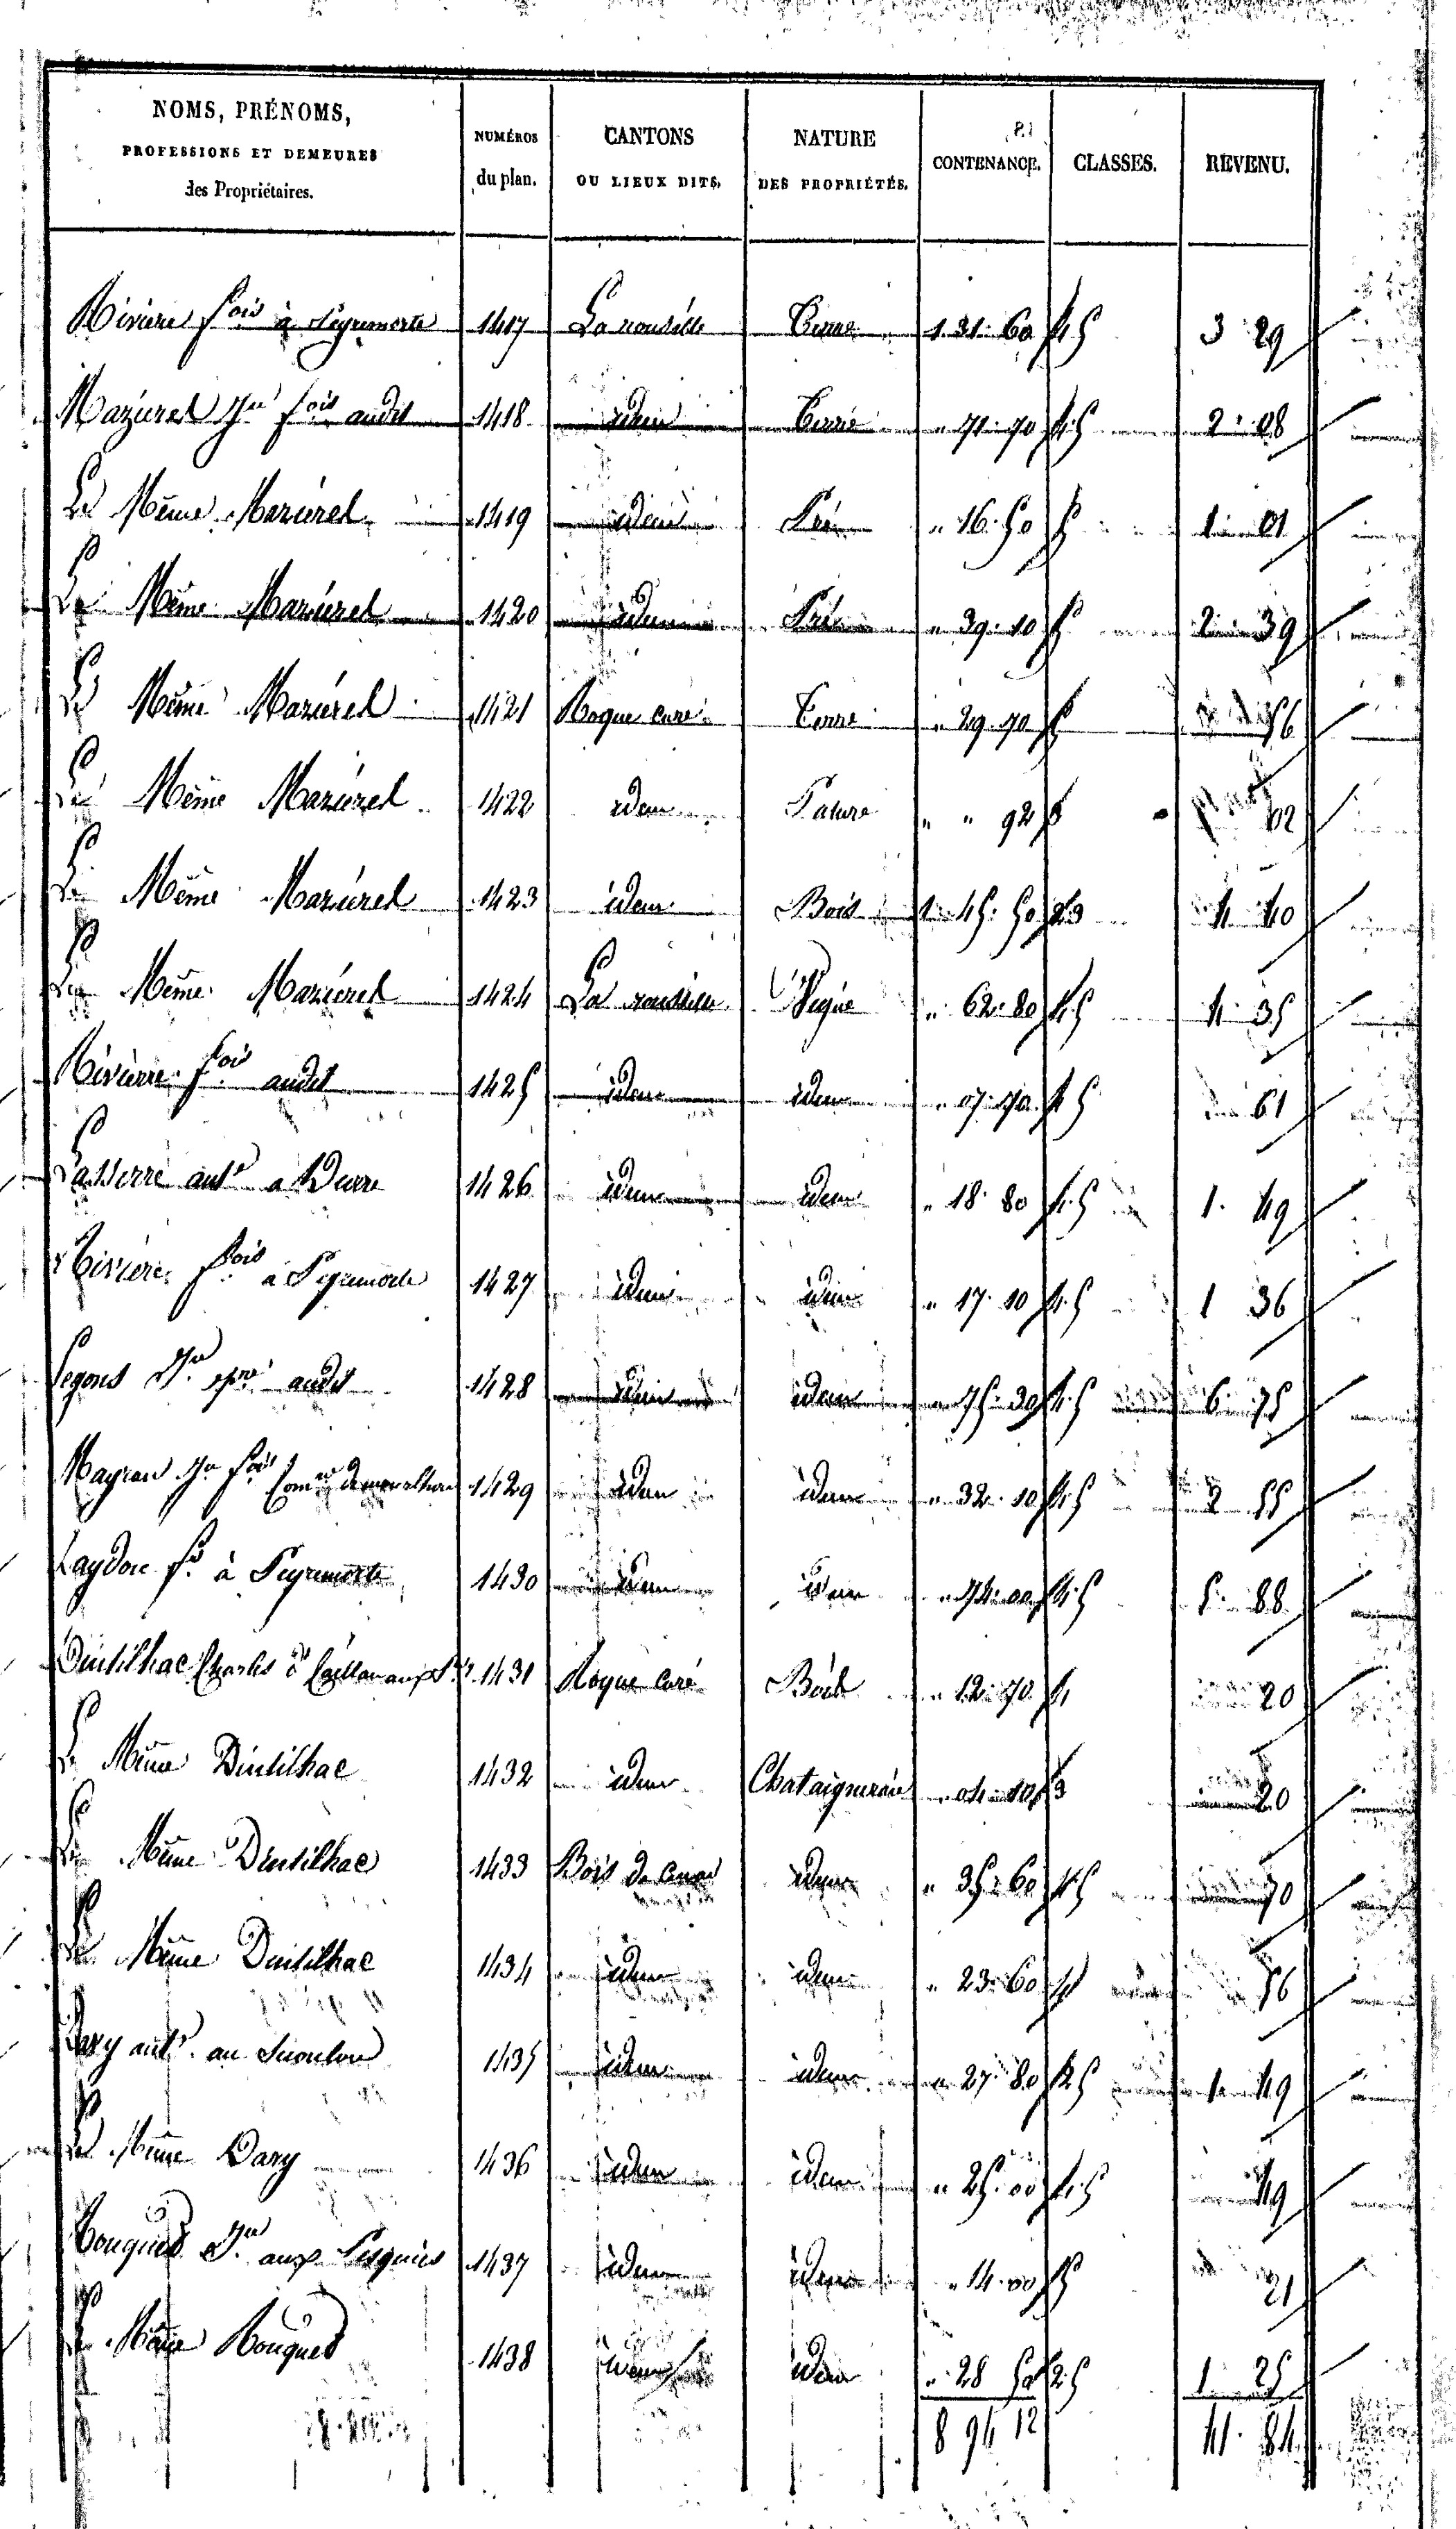 NOMS, PRÉNOMS, PROFESSIONS ET DEMEURES des Propriétaires. NUMÉROS du plan. CANTONS OU LIEUX DITS. NATURE DES PROPRIÉTÉS. CONTENANCE. CLASSES. REVENU.
Rivière fois à Peyremorte 1417 La Terre 1. 31. 60 4.5 3 29
Mazurel Jn fois audit 1418 idem Terre " 71. 70 4.5 2. 08
Le Même Mazurel 1419 idem Pré " 16. 50 5 1 01
Le Même Mazurel 1420 idem Pré " 39. 10 5 2. 39
Le Même Mazurel 1421 Roque curé Terre " 29. 70 5 56
Le Même Mazurel 1422 idem Pature " " 92 02
Le Même Mazurel 1423 idem Bois 1. 45. 50 23 4 40
Le Même Mazurel 1424 La Vigne " 62. 80 4.5 4. 35
Rivière fois audit 1425 idem idem " 07. 70 4 5 61
Lasserre ant a 1426 idem idem " 18. 80 4.5 1. 49
Rivière fois à Peyremorte 1427 idem idem " 17. 10 4.5 1 36
Segons Jn audit 1428 idem idem " 75. 30 4.5 6. 75
Mayran Jn fois 1429 idem idem " 32. 10 4.5 2 55
à Peyremorte 1430 idem idem " 74. 00 4.5 5. 88
Dintilhac Charles 1431 Roque curé Bois " 12. 70 4 20
Le Même Dintilhac 1432 idem Chataigneraie " 04. 10 3 20
Le Même Dintilhac 1433 Bois de idem " 35. 60 4.5 70
Le Même Dintilhac 1434 idem idem " 23. 60 4 56
Dary ant. au 1435 idem idem " 27. 80 2.5 1. 49
Le Même Dary 1436 idem idem " 25. 00 4.5 49
Bouques Jn aux 1437 idem idem " 14. 00 5 21
Le Même Bouques 1438 idem idem " 28 50 2.5 1 25
8 94 12 41. 84